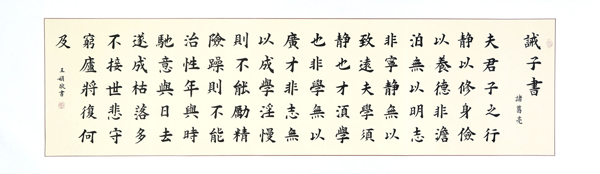 誡子書
諸葛亮
夫君子之行
静以修身儉
以養德非澹
泊無以明志
非寧静無以
致遠夫學須
静也才須學
也非學無以
廣才非志無
以成學淫慢
則不能勵精
險躁則不能
治性年與時
馳意與日去
遂成枯落多
不接世悲守
窮廬將復何
及
王娟敬書